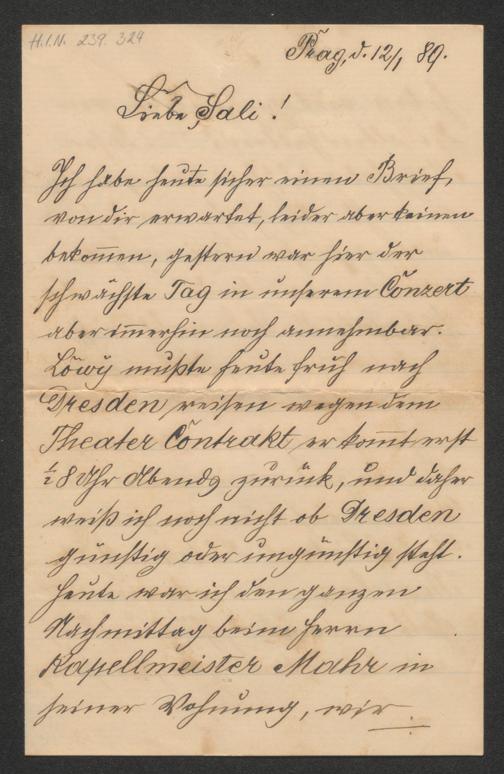 H.I.N. 239.324
Prag, d. 12/1 89.
Liebe Sali!
Ich habe heute sicher einen Brief,
von dir erwartet, leider aber keinen
bekom̅en, gestern war hier der
schwächste Tag in unserem Conzert
aber im̅erhin noch annehmbar.
Löwy mußte heute früh nach
Dresden reisen wegen dem
Theater Contrakt er kom̅t erst
½ 8 Uhr Abends zurück, und daher
weiß ich noch nicht ob Dresden
günstig oder ungünstig steht.
Heute war ich den ganzen
Nachmittag beim Herrn
Kapellmeister Mahr in
seiner Wohnung, wir